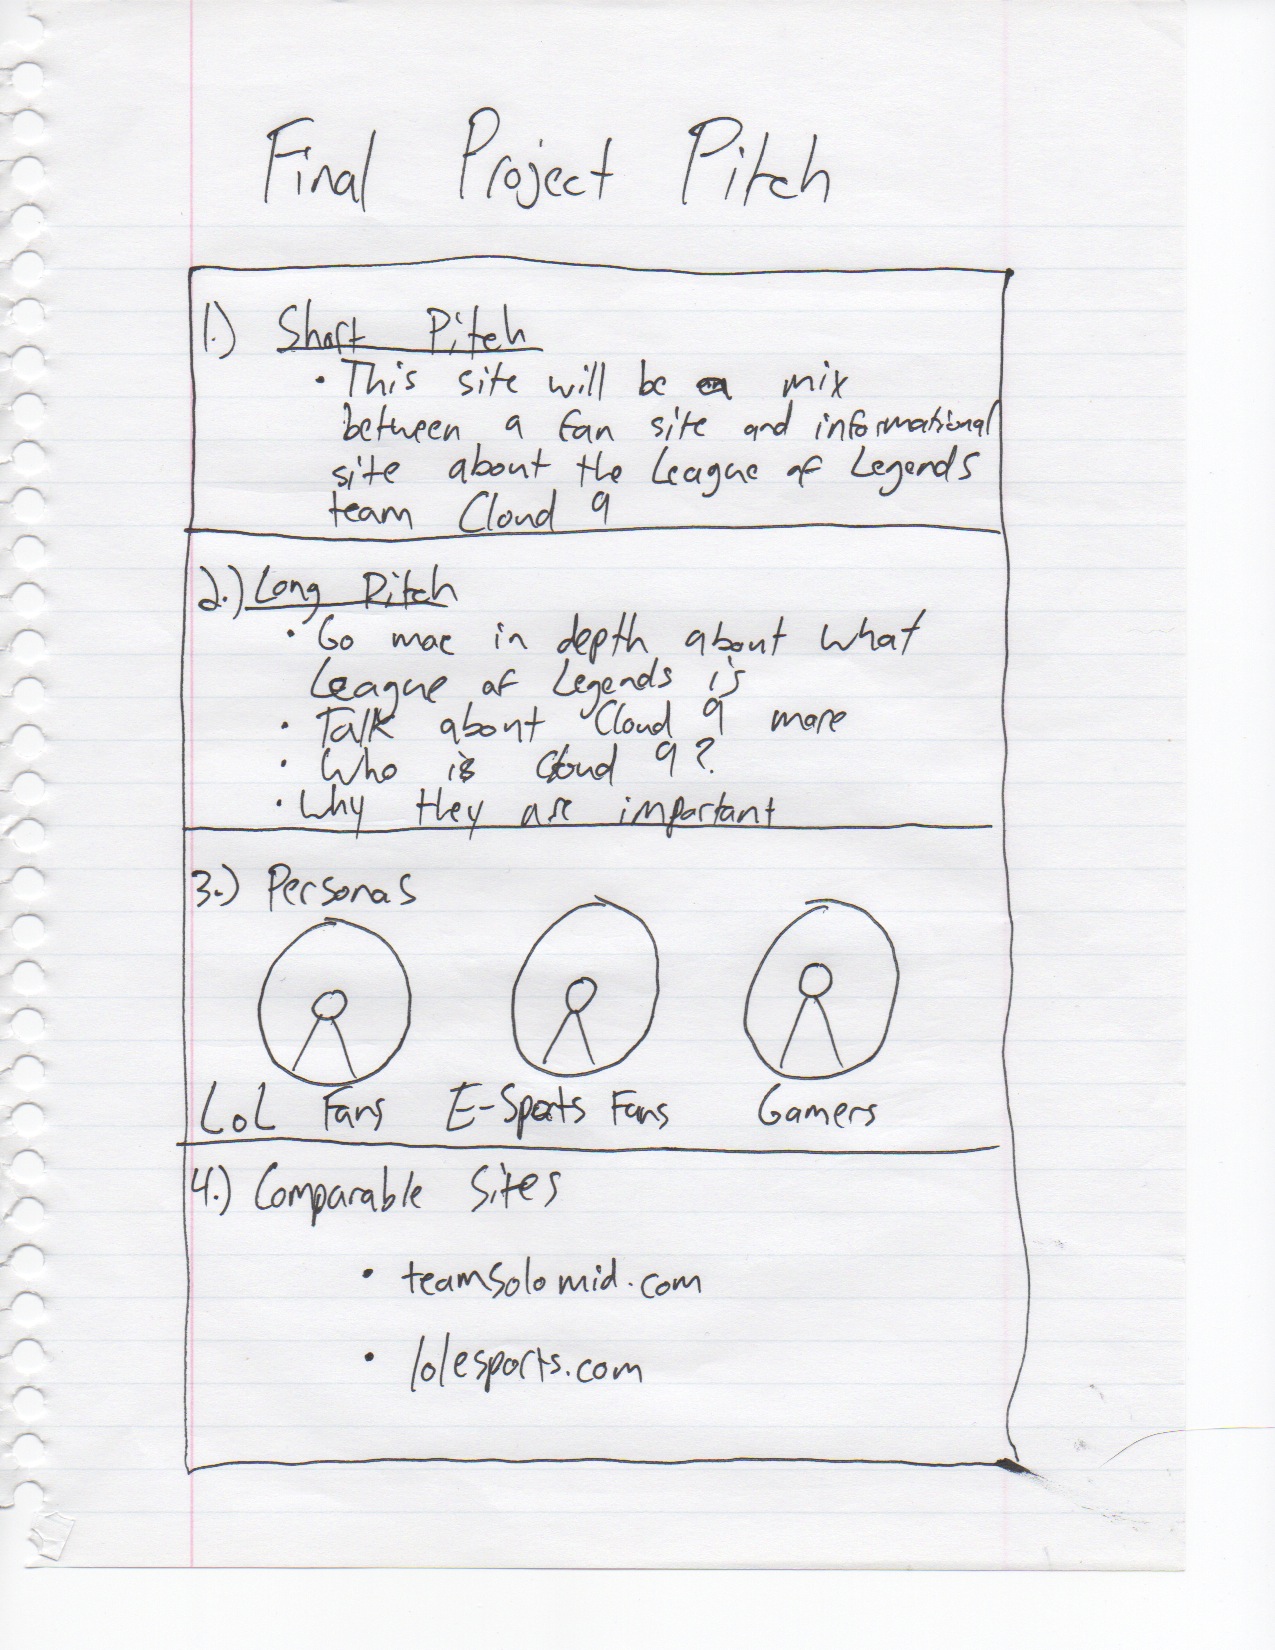 Final Project Pitch
1.) Short Pitch
• This site will be a mix
between a fan site and informational
site about the League of Legends
team Cloud 9
2.) Long Pitch
• Go more in depth about what
League of Legends is
• Talk about Cloud 9 more
• Who is Cloud 9?
• Why they are important
3.) Personas
LoL Fans E-Sports Fans Gamers
4.) Comparable Sites
• teamsolomid.com
• lolesports.com